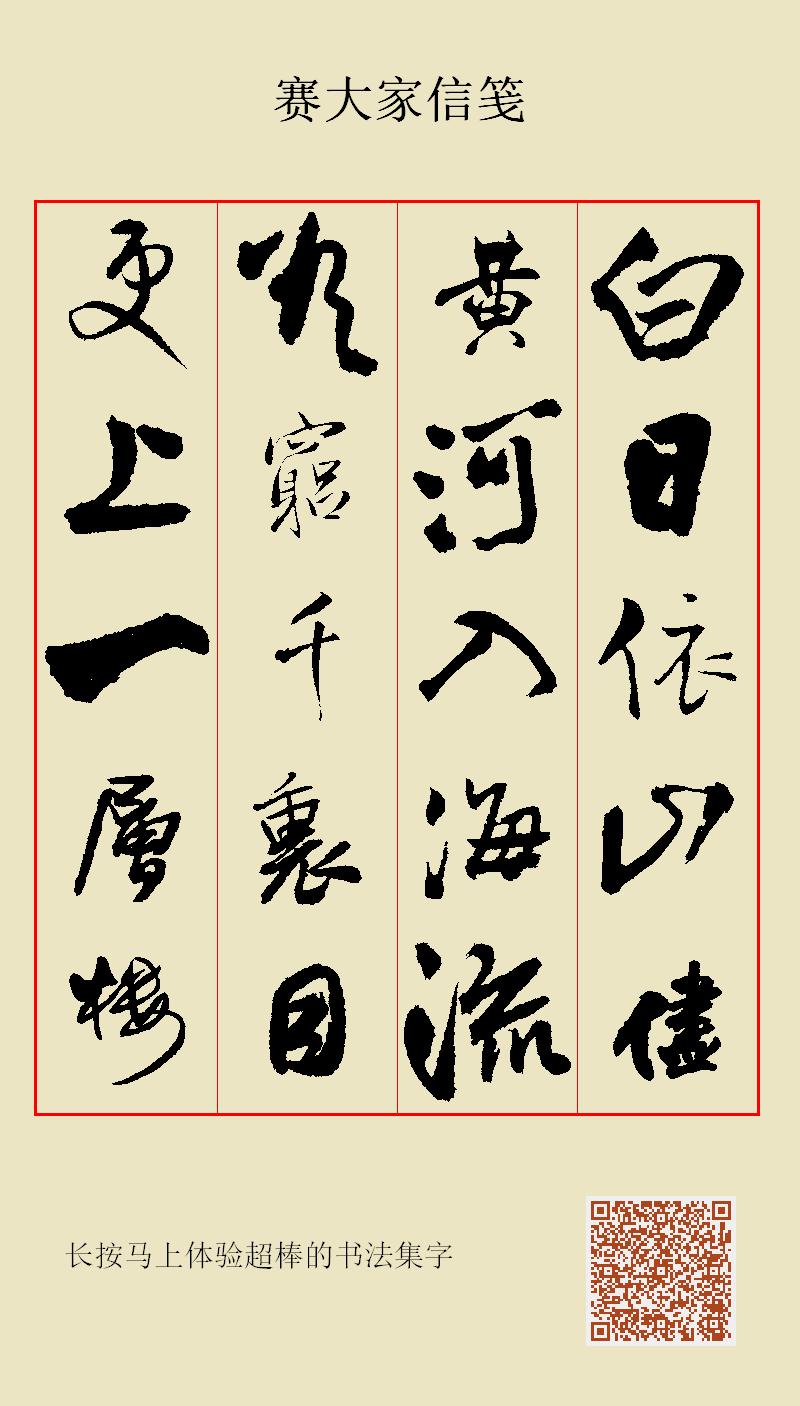 赛大家信笺
白日依山儘
黄河入海流
欲窮千裏目
更上一層楼
长按马上体验超棒的书法集字